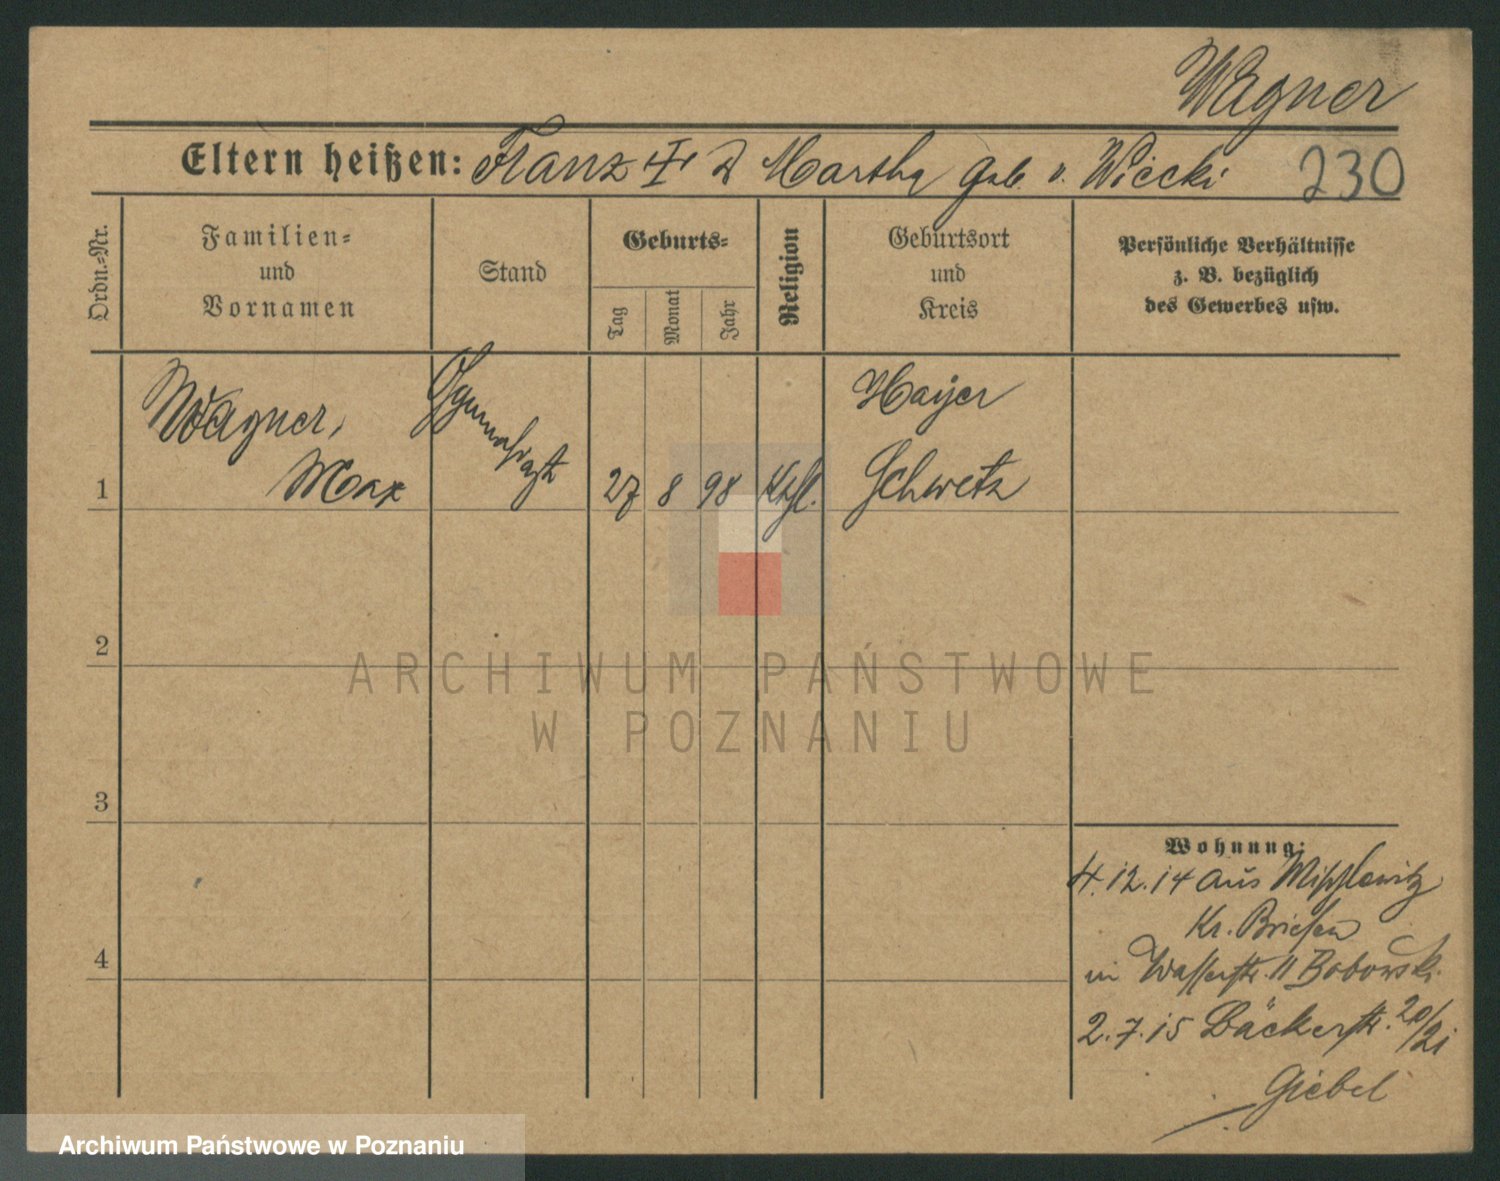 Wagner
Eltern heißen: Franz u Martha geb. v. Wiecki 230
Ordn.-Nr.
Familien-
und
Vornamen
Stand
Geburts-
Tag
Monat
Jahr
Religion
Geburtsort
und
Kreis
Persönliche Verhältnisse
z. B. bezüglich
des Gewerbes usw.
1
Wagner,
Max
Gymnasiast
27 8 98 Kthl.
Schwetz
2
3
4
Wohnung:
4.12.14 aus
Kr. Briesen
in Wasserstr. 11 Bobowski.
2.7.15 Bäckerstr. 20/21
Giebel
ARCHIWUM PAŃSTWOWE
W POZNANIU
Archiwum Państwowe w Poznaniu